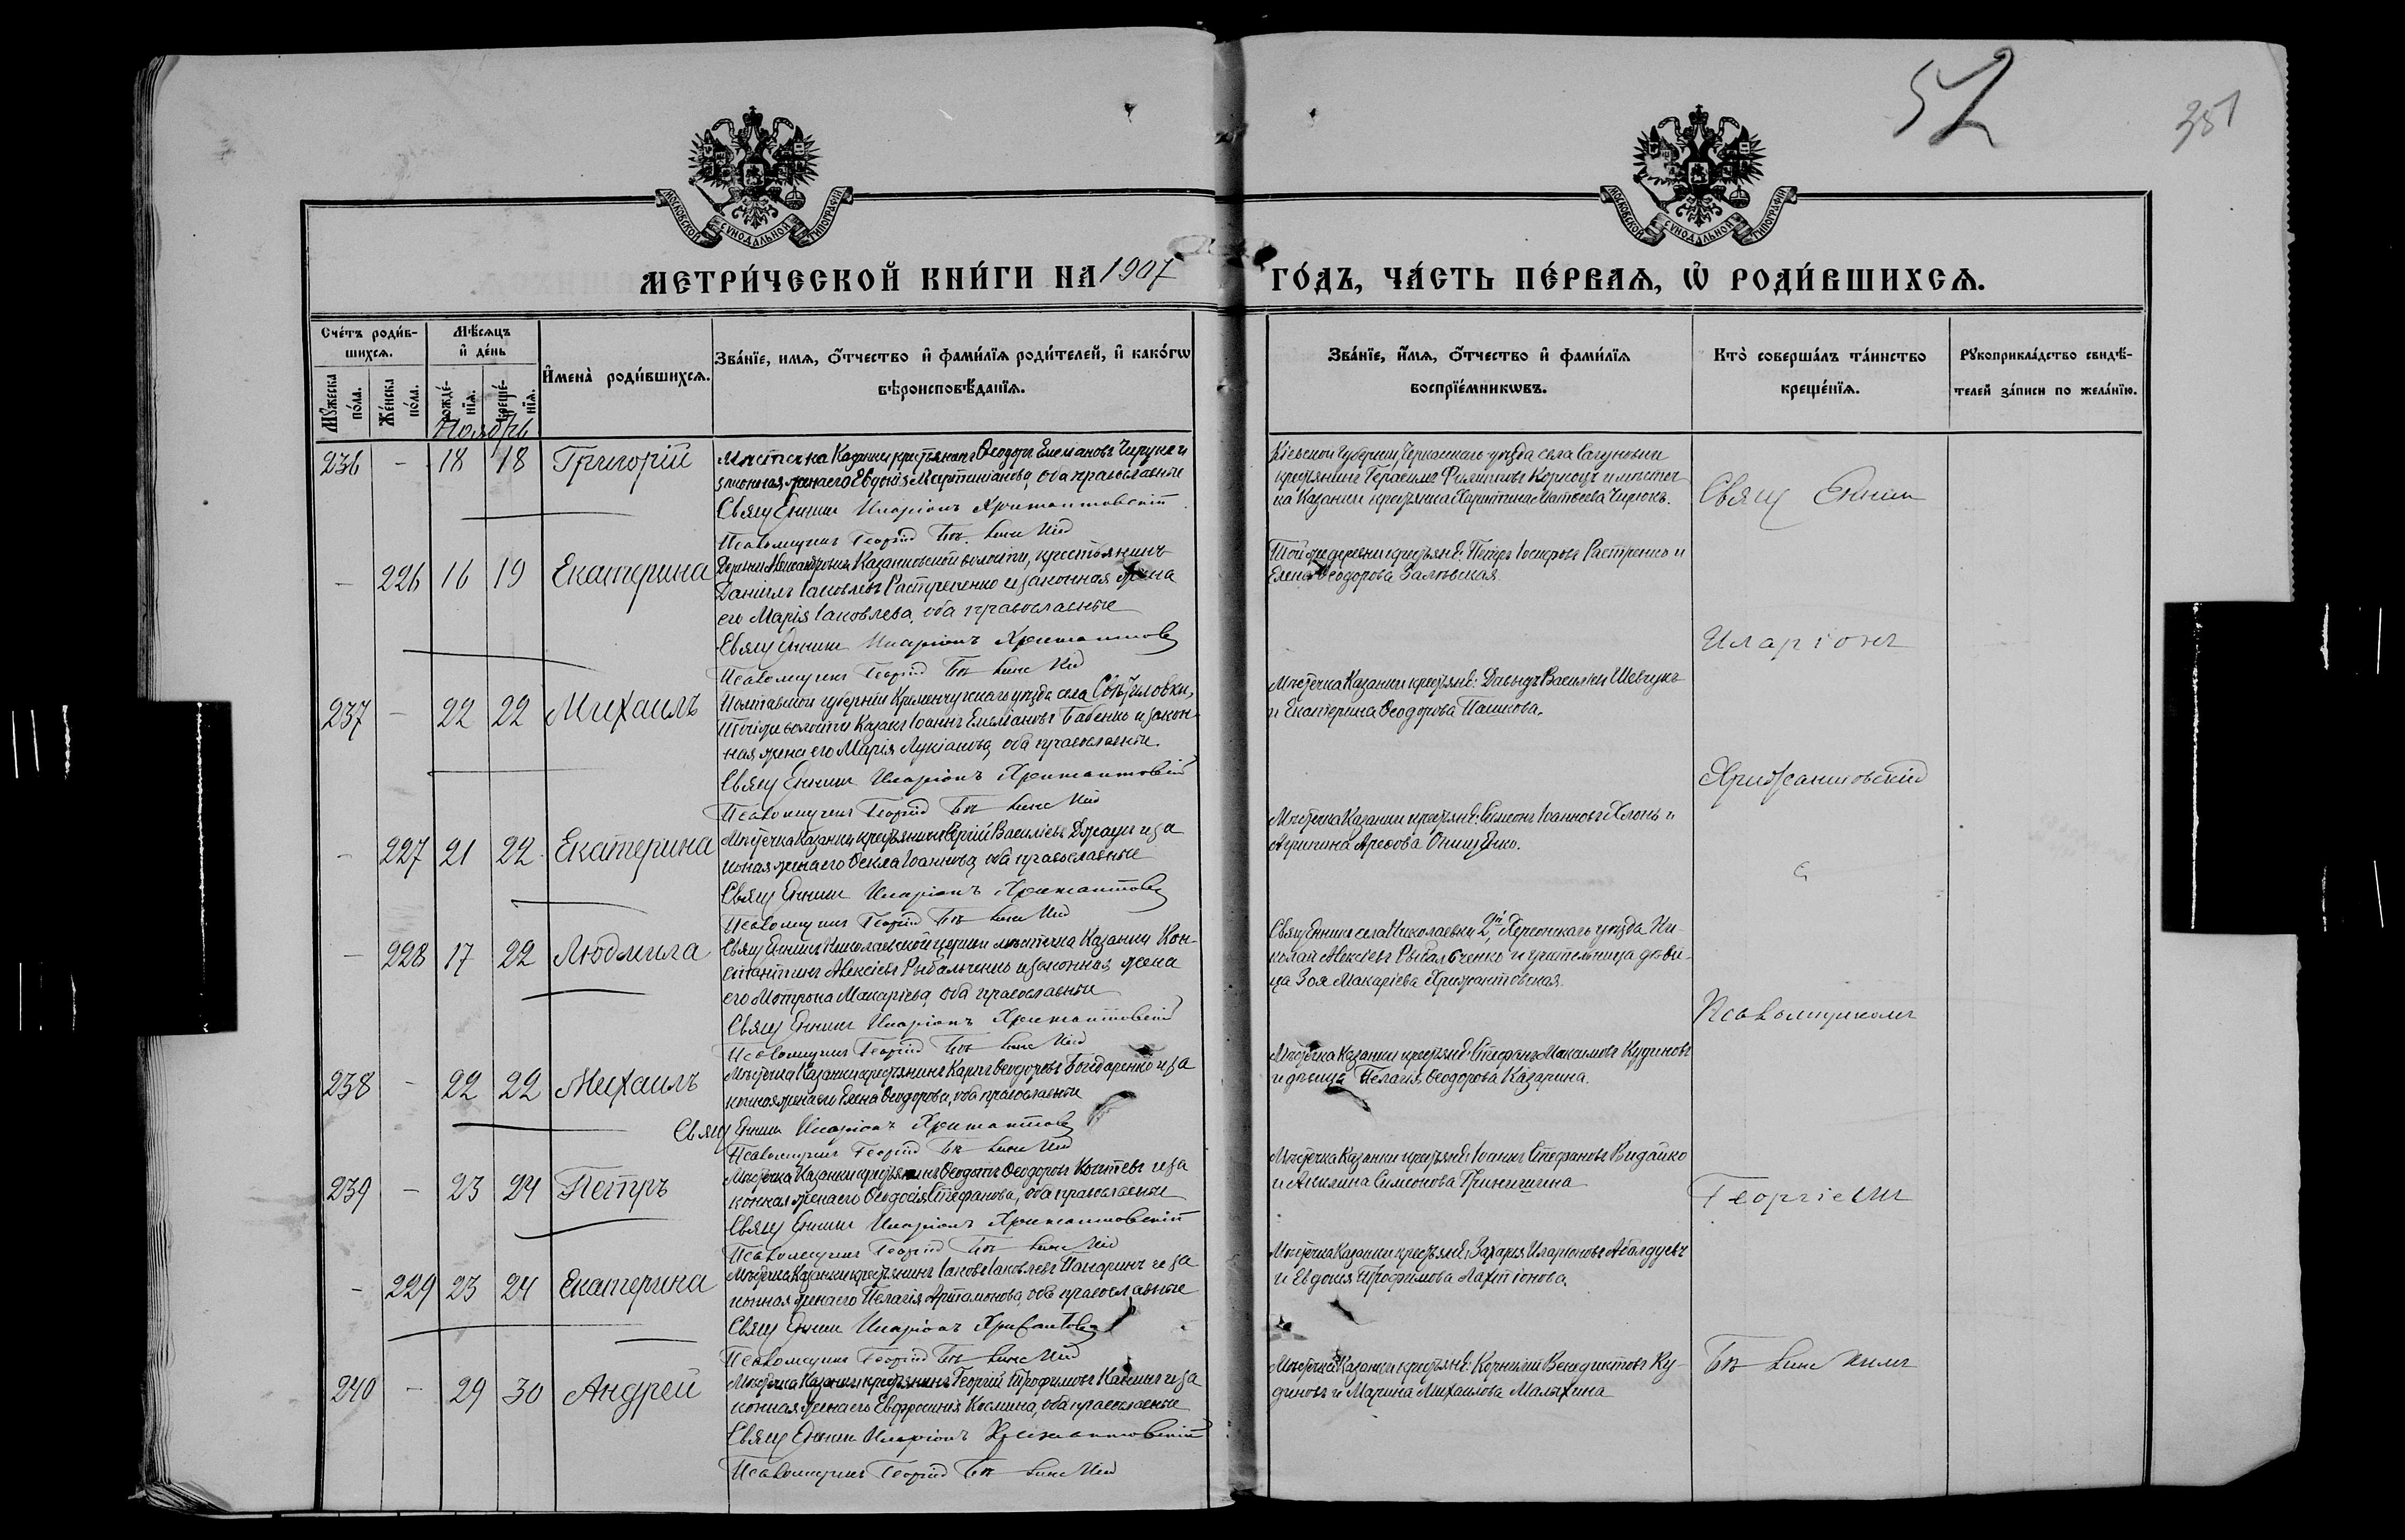 52
351
МОСКОВСКОЙ СѴНОДАЛЬНОЙ ТИПОГРАФІИ
МОСКОВСКОЙ СѴНОДАЛЬНОЙ ТИПОГРАФІИ
МЕТРИ́ЧЕСКОЙ КНИ́ГИ НА 1907 ГО́ДЪ, ЧА́СТЬ ПЕ́РВАЯ, Ѡ РОДИ́ВШИХСЯ.
Сче́тъ роди́в-
шихся.
Мѣ́сяцъ
и де́нь
Мꙋ́жеска по́ла.
Же́нска по́ла.
рожде́-
нїя.
креще́-
нїя.
Имена̀ роди́вшихся.
Зва́нїе, имя, о́тчество и фами́лїя роди́телей, и како́гѡ
вѣроисповѣ́данїя.
Зва́нїе, и́мя, о́тчество и фами́лїя
воспрїе́мникѡвъ.
Кто̀ соверша́лъ та́инство
креще́нїя.
Рꙋкоприкла́дство свидѣ́-
телей за́писи по жела́нїю.
Ноябрь
236 - 18 18 Григорій
Мѣстечка Казанки крестьянинъ Ѳеодоръ Емеліановъ Чирукъ и
законная жена его Евдокія Мартиніанова, оба православные
Священникъ Иларіонъ Хрисантовскій
Псаломщикъ Георгій
Кіевской губерніи, Черкасскаго уѣзда села Сагуновки
крестьянинъ Герасимъ Филиповъ и мѣстеч-
ка Казанки крестьянка Матвѣева Чирюкъ.
Свящ Енникъ
- 226 16 19 Екатерина
Деревни Казанковской волости, крестьянинъ
Даніилъ Іаковлевъ Растрепенко и законная жена
его Марія Іаковлева, оба православные
Священникъ Иларіонъ
Псаломщикъ Георгій
Той же деревни крестьяне: Петръ Іосифовъ Растренко и
Елена Ѳеодорова Залевская.
Иларіонъ
237 - 22 22 Михаилъ
Полтавской губерніи Кременчугскаго уѣзда села
Той же волости казакъ Іоаннъ Емеліановъ Бабенко и закон-
ная жена его Марія Лукіанова, оба православные.
Священникъ Иларіонъ Хрисантовскій
Псаломщикъ Георгій
Мѣстечка Казанки крестьяне: Давидъ Василіевъ Шевчукъ
и Екатерина Ѳеодорова Пашкова.
Хрисантовскій
- 227 21 22 Екатерина
Мѣстечка Казанки крестьянинъ Сергій Василіевъ и за
конная жена его Ѳекла Іоаннова, оба православные
Священникъ Иларіонъ
Псаломщикъ Георгій
Мѣстечка Казанки крестьяне: Симеонъ Іоанновъ и
Онищенко.
с
- 228 17 22 Людмила
Священникъ Николаевской церкви мѣстечка Казанки Кон-
стантинъ Алексіевъ Рыбальченко и законная жена
его Макаріева, оба православные
Священникъ Иларіонъ Хрисантовскій
Псаломщикъ Георгій
Священникъ села Николаевки 2й, Херсонскаго уѣзда Ни-
колай Алексіевъ Рыбальченко и учительница дѣви-
ца Зоя Макаріева Хрисантовская.
Псаломщикомъ
238 - 22 22 Михаилъ
Мѣстечка Казанки крестьянинъ Карпъ Ѳеодоровъ Бондаренко и за
конная жена его Елена Ѳеодорова, оба православные
Священникъ Иларіонъ
Псаломщикъ Георгій
Мѣстечка Казанки крестьяне: Стефанъ Максимовъ Кудиновъ
и дѣвица Пелагія Ѳеодорова Казарина.
239 - 23 24 Петръ
Мѣстечка Казанки крестьянинъ Ѳеодотъ Ѳеодоровъ и за
конная жена его Ѳеодосія Стефанова, оба православные
Священникъ Иларіонъ Хрисантовскій
Псаломщикъ Георгій
Мѣстечка Казанки крестьяне: Іоаннъ Стефановъ Видайко
и Акилина Симеонова
Георгіемъ
- 229 23 24 Екатерина
Мѣстечка Казанки крестьянинъ Іаковъ Іаковлевъ Панаринъ и за
конная жена его Пелагія Артамонова, оба православные
Священникъ Иларіонъ
Псаломщикъ Георгій
Мѣстечка Казанки крестьяне: Захарія Иларіоновъ Абалдуевъ
и Евдокія Трофимова Лахтіонова.
240 - 29 30 Андрей
Мѣстечка Казанки крестьянинъ Георгій Трофимовъ и за
конная жена его Евфросинія Космина, оба православные
Священникъ Иларіонъ Хрисантовскій
Псаломщикъ Георгій
Мѣстечка Казанки крестьяне: Корнилій Венедиктовъ Ку-
диновъ и Марина Михаилова Малыхина